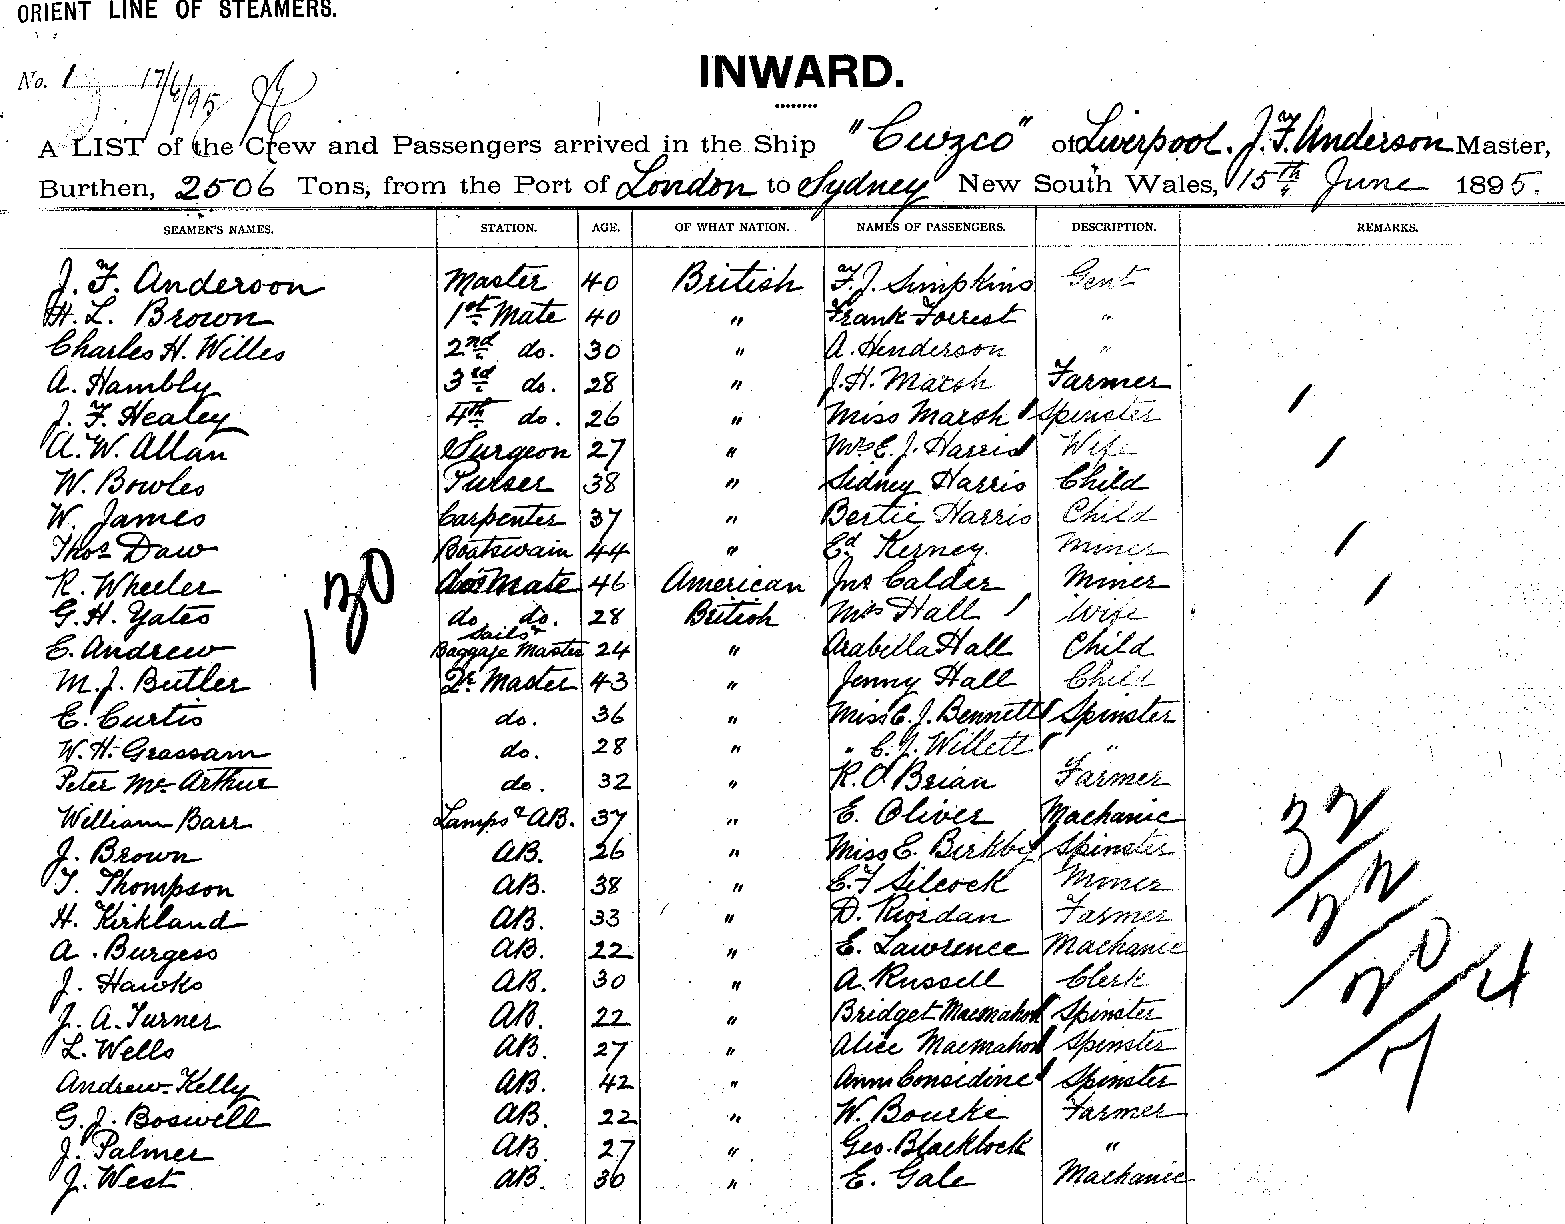 ORIENT LINE OF STEAMERS.
No. 1 17/6/95
INWARD.
A LIST of the Crew and Passengers arrived in the Ship "Cuzco" of Liverpool. J. F. Anderson Master,
Burthen, 2506 Tons, from the Port of London to Sydney New South Wales, 15th June 1895.
SEAMEN'S NAMES. STATION. AGE. OF WHAT NATION. NAMES OF PASSENGERS. DESCRIPTION. REMARKS.
J. F. Anderson Master 40 British F. J. Simpkins Gent
H. L. Brown 1st Mate 40 " Frank Forrest "
Charles H. Willes 2nd do. 30 " A. Henderson "
A. Hambly 3rd do. 28 " J. H. Marsh Farmer
J. F. Healey 4th do. 26 " Miss Marsh Spinster
A. W. Allan Surgeon 27 " Mrs E. J. Harris Wife
W. Bowles Purser 38 " Sidney Harris Child
W. James Carpenter 37 " Bertie Harris Child
Thos Daw Boatswain 44 " Ed Kerney. Miner
R. Wheeler dos Mate 46 American Jno Calder Miner
G. H. Yates do do. 28 British Mrs Hall Wife
E. Andrew Sails & Baggaje Master 24 " Arabella Hall Child
M. J. Butler Qr Master 43 " Jenny Hall Child
E. Curtis do. 36 " Miss E. J. Bennett Spinster
W. H. Grassam do. 28 " " E. J. Willett "
Peter Mc Arthur do. 32 " R. O'Brian Farmer
William Barr Lamps & AB. 37 " E. Oliver Machanic
J. Brown AB. 26 " Miss E. Birkby Spinster
T. Thompson AB. 38 " E. F Silcock Miner
H. Kirkland AB. 33 " D. Riordan Farmer
A. Burgess AB. 22 " E. Lawrence Machanic
J. Hawks AB. 30 " A. Russell Clerk
J. A. Turner AB. 22 " Bridget Macmahon Spinster
L. Wells AB. 27 " Alice Macmahon Spinster
Andrew Kelly AB. 42 " Ann Considine Spinster
G. J. Boswell AB. 22 " W. Bourke Farmer
J. Palmer AB. 27 " Geo. Blacklock "
J. West AB. 30 " E. Gale Machanic
130
32/22/20/7 4